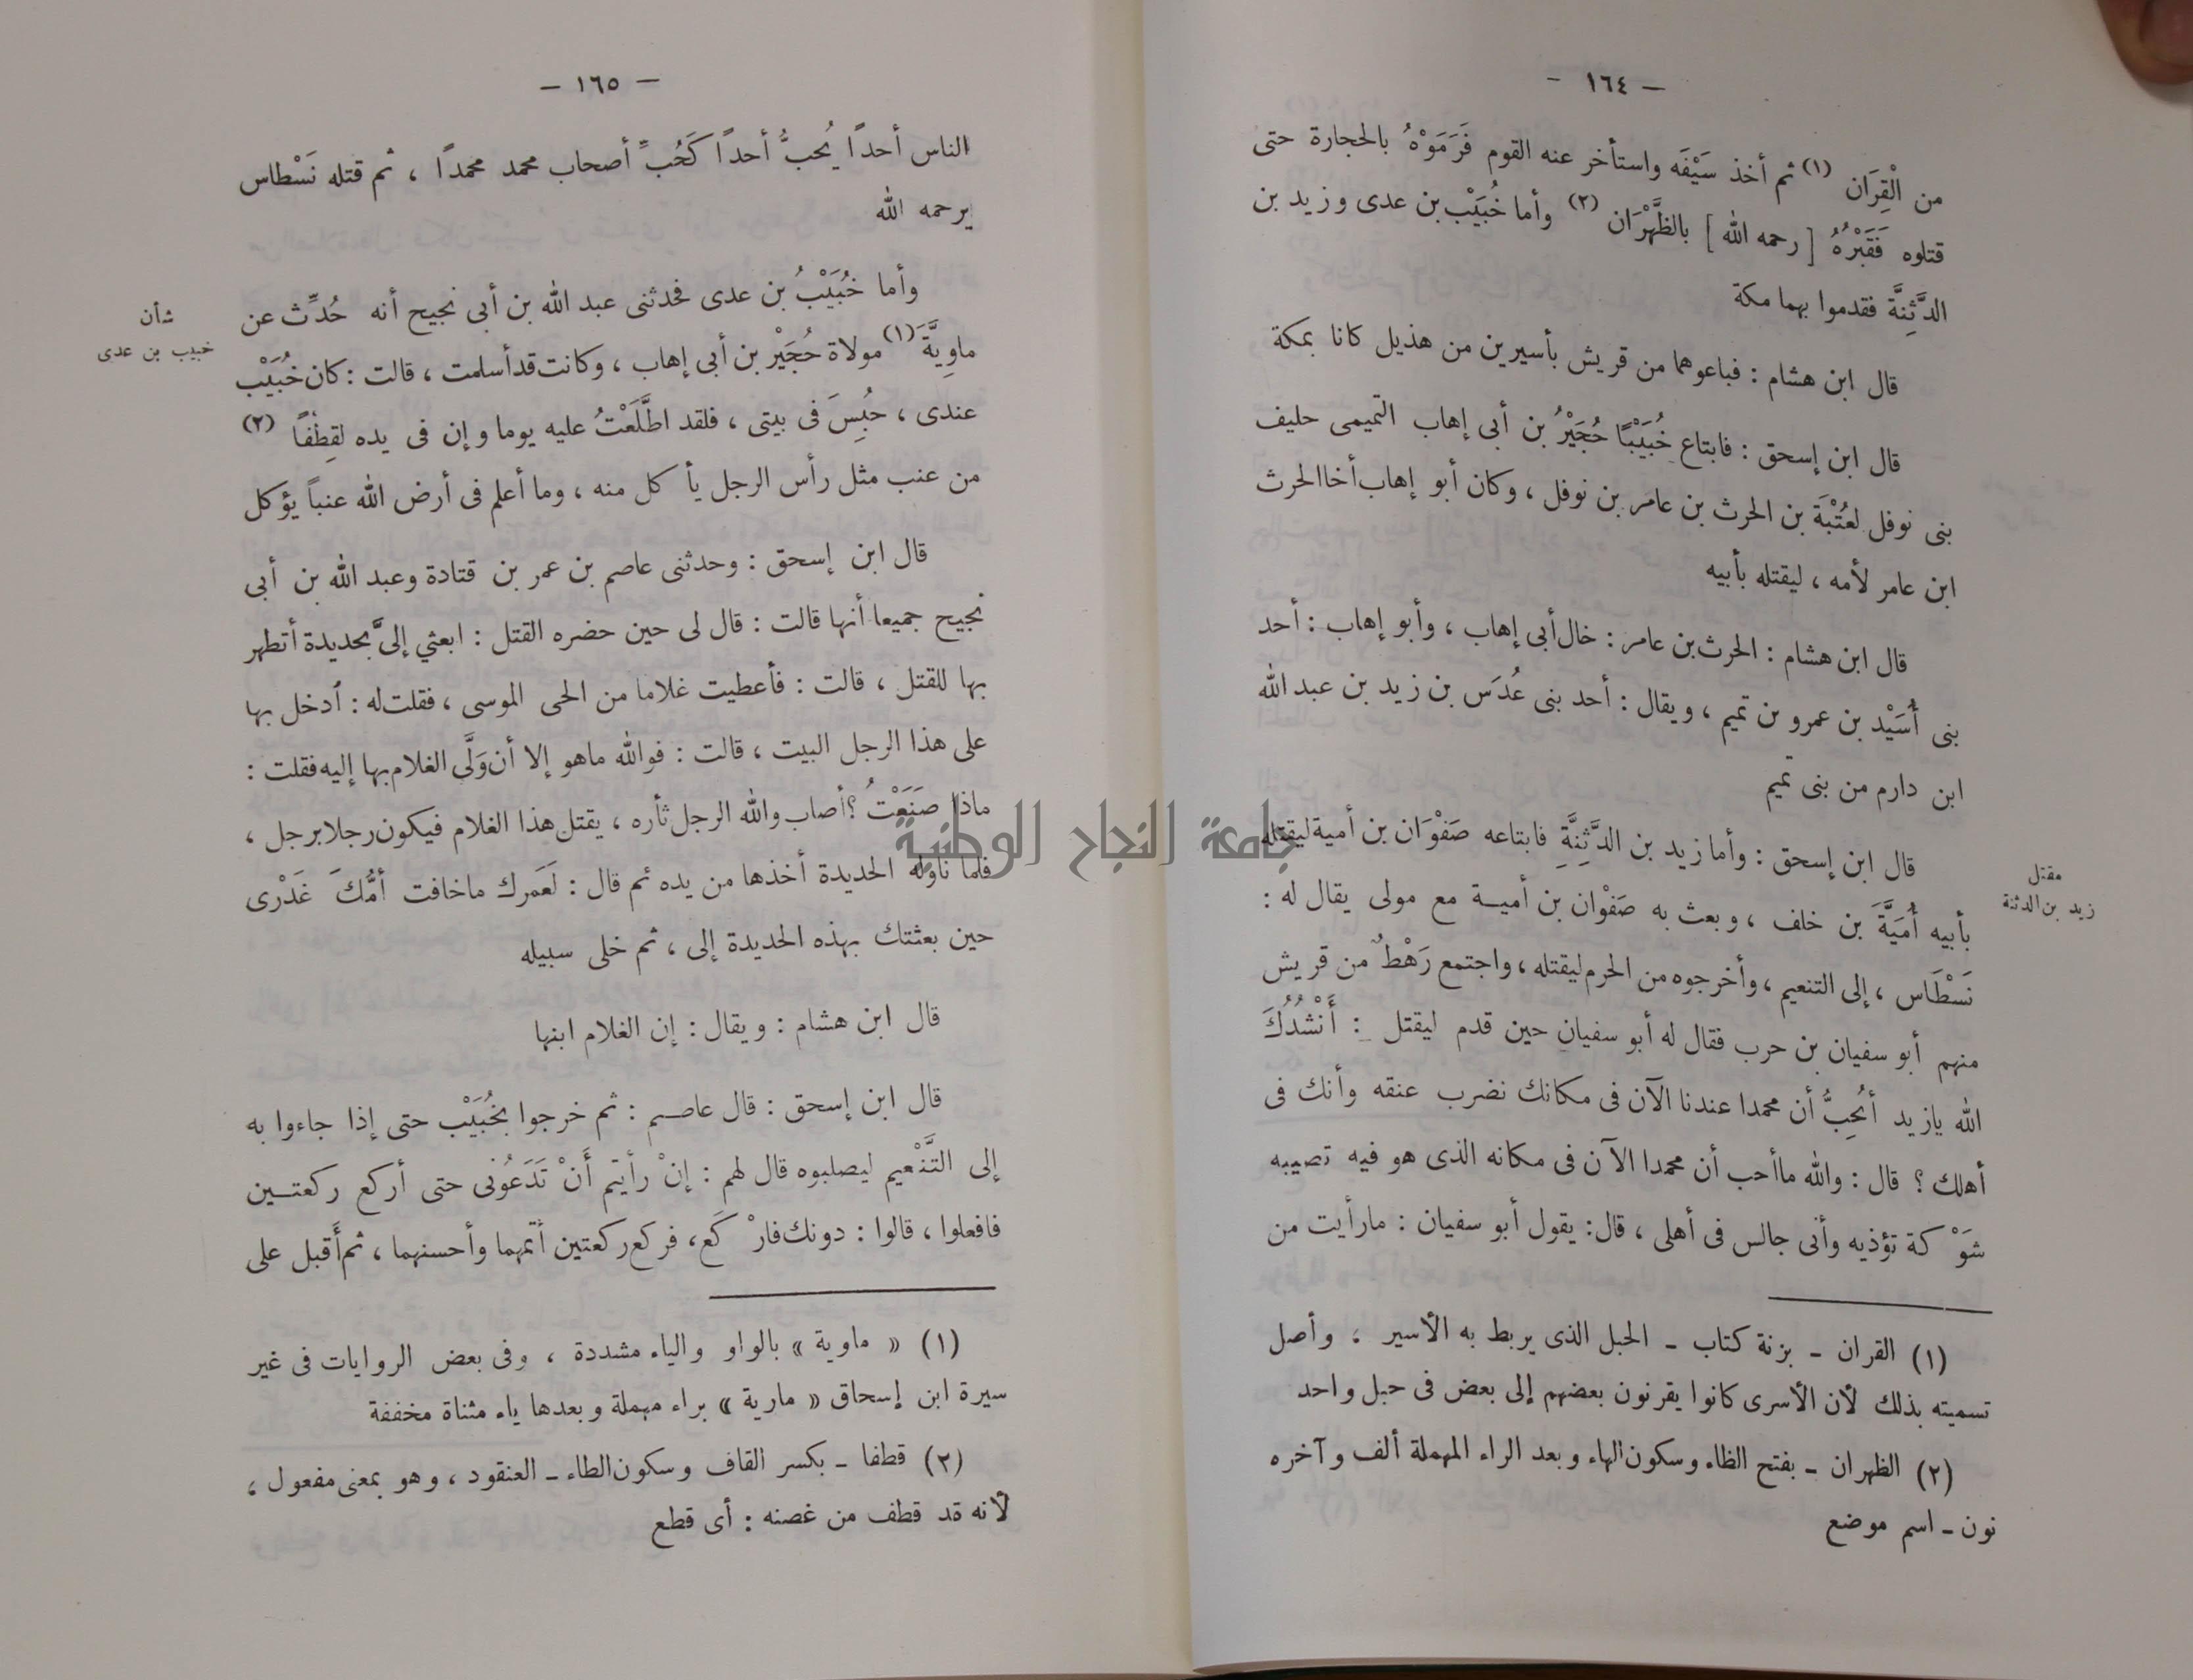 — ١٦٤ —
من الْقِرَان (١) ثم أخذ سَيْفَه واستأخر عنه القوم فَرَمَوْهُ بالحجارة حتى
قتلوه فَقَبْرُهُ [ رحمه الله ] بالظَّهْرَان (٢) وأما خُبَيْب بن عدى وزيد بن
الدَّثِنَّة فقدموا بهما مكة
قال ابن هشام : فباعوهما من قريش بأسيرين من هذيل كانا بمكة
قال ابن إسحق : فابتاع خُبَيْبًا حُجَيْرُ بن أبى إهاب التميمى حليف
بنى نوفل لعُتْبَة بن الحرث بن عامر بن نوفل ، وكان أبو إهاب أخا الحرث
ابن عامر لأمه ، ليقتله بأبيه
قال ابن هشام : الحرث بن عامر : خال أبى إهاب ، وأبو إهاب : أحد
بنى أُسَيْد بن عمرو بن تميم ، ويقال : أحد بنى عُدَس بن زيد بن عبد الله
ابن دارم من بنى تميم
قال ابن إسحق : وأما زيد بن الدَّثِنَّةِ فابتاعه صَفْوَان بن أمية ليقتله
مقتل
زيد بن الدثنة
بأبيه أُمَيَّةَ بن خلف ، وبعث به صَفْوَان بن أميــة مع مولى يقال له :
نَسْطَاس ، إلى التنعيم ، وأخرجوه من الحرم ليقتله ، واجتمع رَهْطٌ من قريش
منهم أبو سفيان بن حرب فقال له أبو سفيان حين قدم ليقتل : أَنْشُدُكَ
الله يا زيد أَتُحِبُّ أن محمدا عندنا الآن فى مكانك نضرب عنقه وأنك فى
أهلك ؟ قال : والله ما أحب أن محمدا الآن فى مكانه الذى هو فيه تصيبه
شَوْكة تؤذيه وأنى جالس فى أهلى ، قال : يقول أبو سفيان : ما رأيت من
(١) القران – بزنة كتاب – الحبل الذى يربط به الأسير ، وأصل
تسميته بذلك لأن الأسرى كانوا يقرنون بعضهم إلى بعض فى حبل واحد
(٢) الظهران – بفتح الظاء وسكون الهاء وبعد الراء المهملة ألف وآخره
نون – اسم موضع
— ١٦٥ —
الناس أحداً يُحبُّ أحداً كَحُبِّ أصحاب محمد محمداً ، ثم قتله نَسْطاس
يرحمه الله
وأما خُبَيْبُ بن عدى فحدثنى عبد الله بن أبى نجيح أنه حُدِّث عن
شأن
خبيب بن عدى
ماوِيَّةَ (١) مولاة حُجَيْر بن أبى إهاب ، وكانت قد أسلمت ، قالت : كان خُبَيْب
عندى ، حُبِسَ فى بيتى ، فلقد اطَّلَعْتُ عليه يوما وإن فى يده لقِطْفًا (٢)
من عنب مثل رأس الرجل يأكل منه ، وما أعلم فى أرض الله عنباً يؤكل
قال ابن إسحق : وحدثنى عاصم بن عمر بن قتادة وعبد الله بن أبى
نجيح جميعا أنها قالت : قال لى حين حضره القتل : ابعثي إلىَّ بحديدة أتطهر
بها للقتل ، قالت : فأعطيت غلاما من الحى الموسى ، فقلت له : اُدخل بها
على هذا الرجل البيت ، قالت : فوالله ما هو إلا أن وَلَّى الغلام بها إليه فقلت :
ماذا صَنَعْتُ ؟ أصاب والله الرجل ثأره ، يقتل هذا الغلام فيكون رجلا برجل ،
فلما ناوله الحديدة أخذها من يده ثم قال : لَعَمرك ما خافت أمُّكَ غَدْرى
حين بعثتك بهذه الحديدة إلى ، ثم خلى سبيله
قال ابن هشام : ويقال : إن الغلام ابنها
قال ابن إسحق : قال عاصــم : ثم خرجوا بخُبَيْب حتى إذا جاءوا به
إلى التَّنْعيم ليصلبوه قال لهم : إنْ رأيتم أَنْ تَدَعُونى حتى أركع ركعتــين
فافعلوا ، قالوا : دونك فارْكَع ، فركع ركعتين أتمهما وأحسنهما ، ثم أَقبل على
(١) « ماوية » بالواو والياء مشددة ، وفى بعض الروايات فى غير
سيرة ابن إسحاق « مارية » براء مهملة وبعدها ياء مثناة مخففة
(٢) قطفا – بكسر القاف وسكون الطاء – العنقود ، وهو بمعنى مفعول ،
لأنه قد قطف من غصنه : أى قطع
جامعة النجاح الوطنية